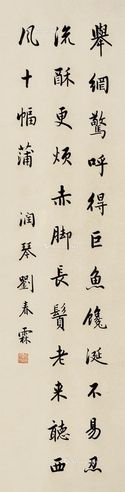 舉網驚呼得巨魚饞涎不易忍
流酥更煩赤脚長鬚老来聽西
風十幅蒲 润琴劉春霖